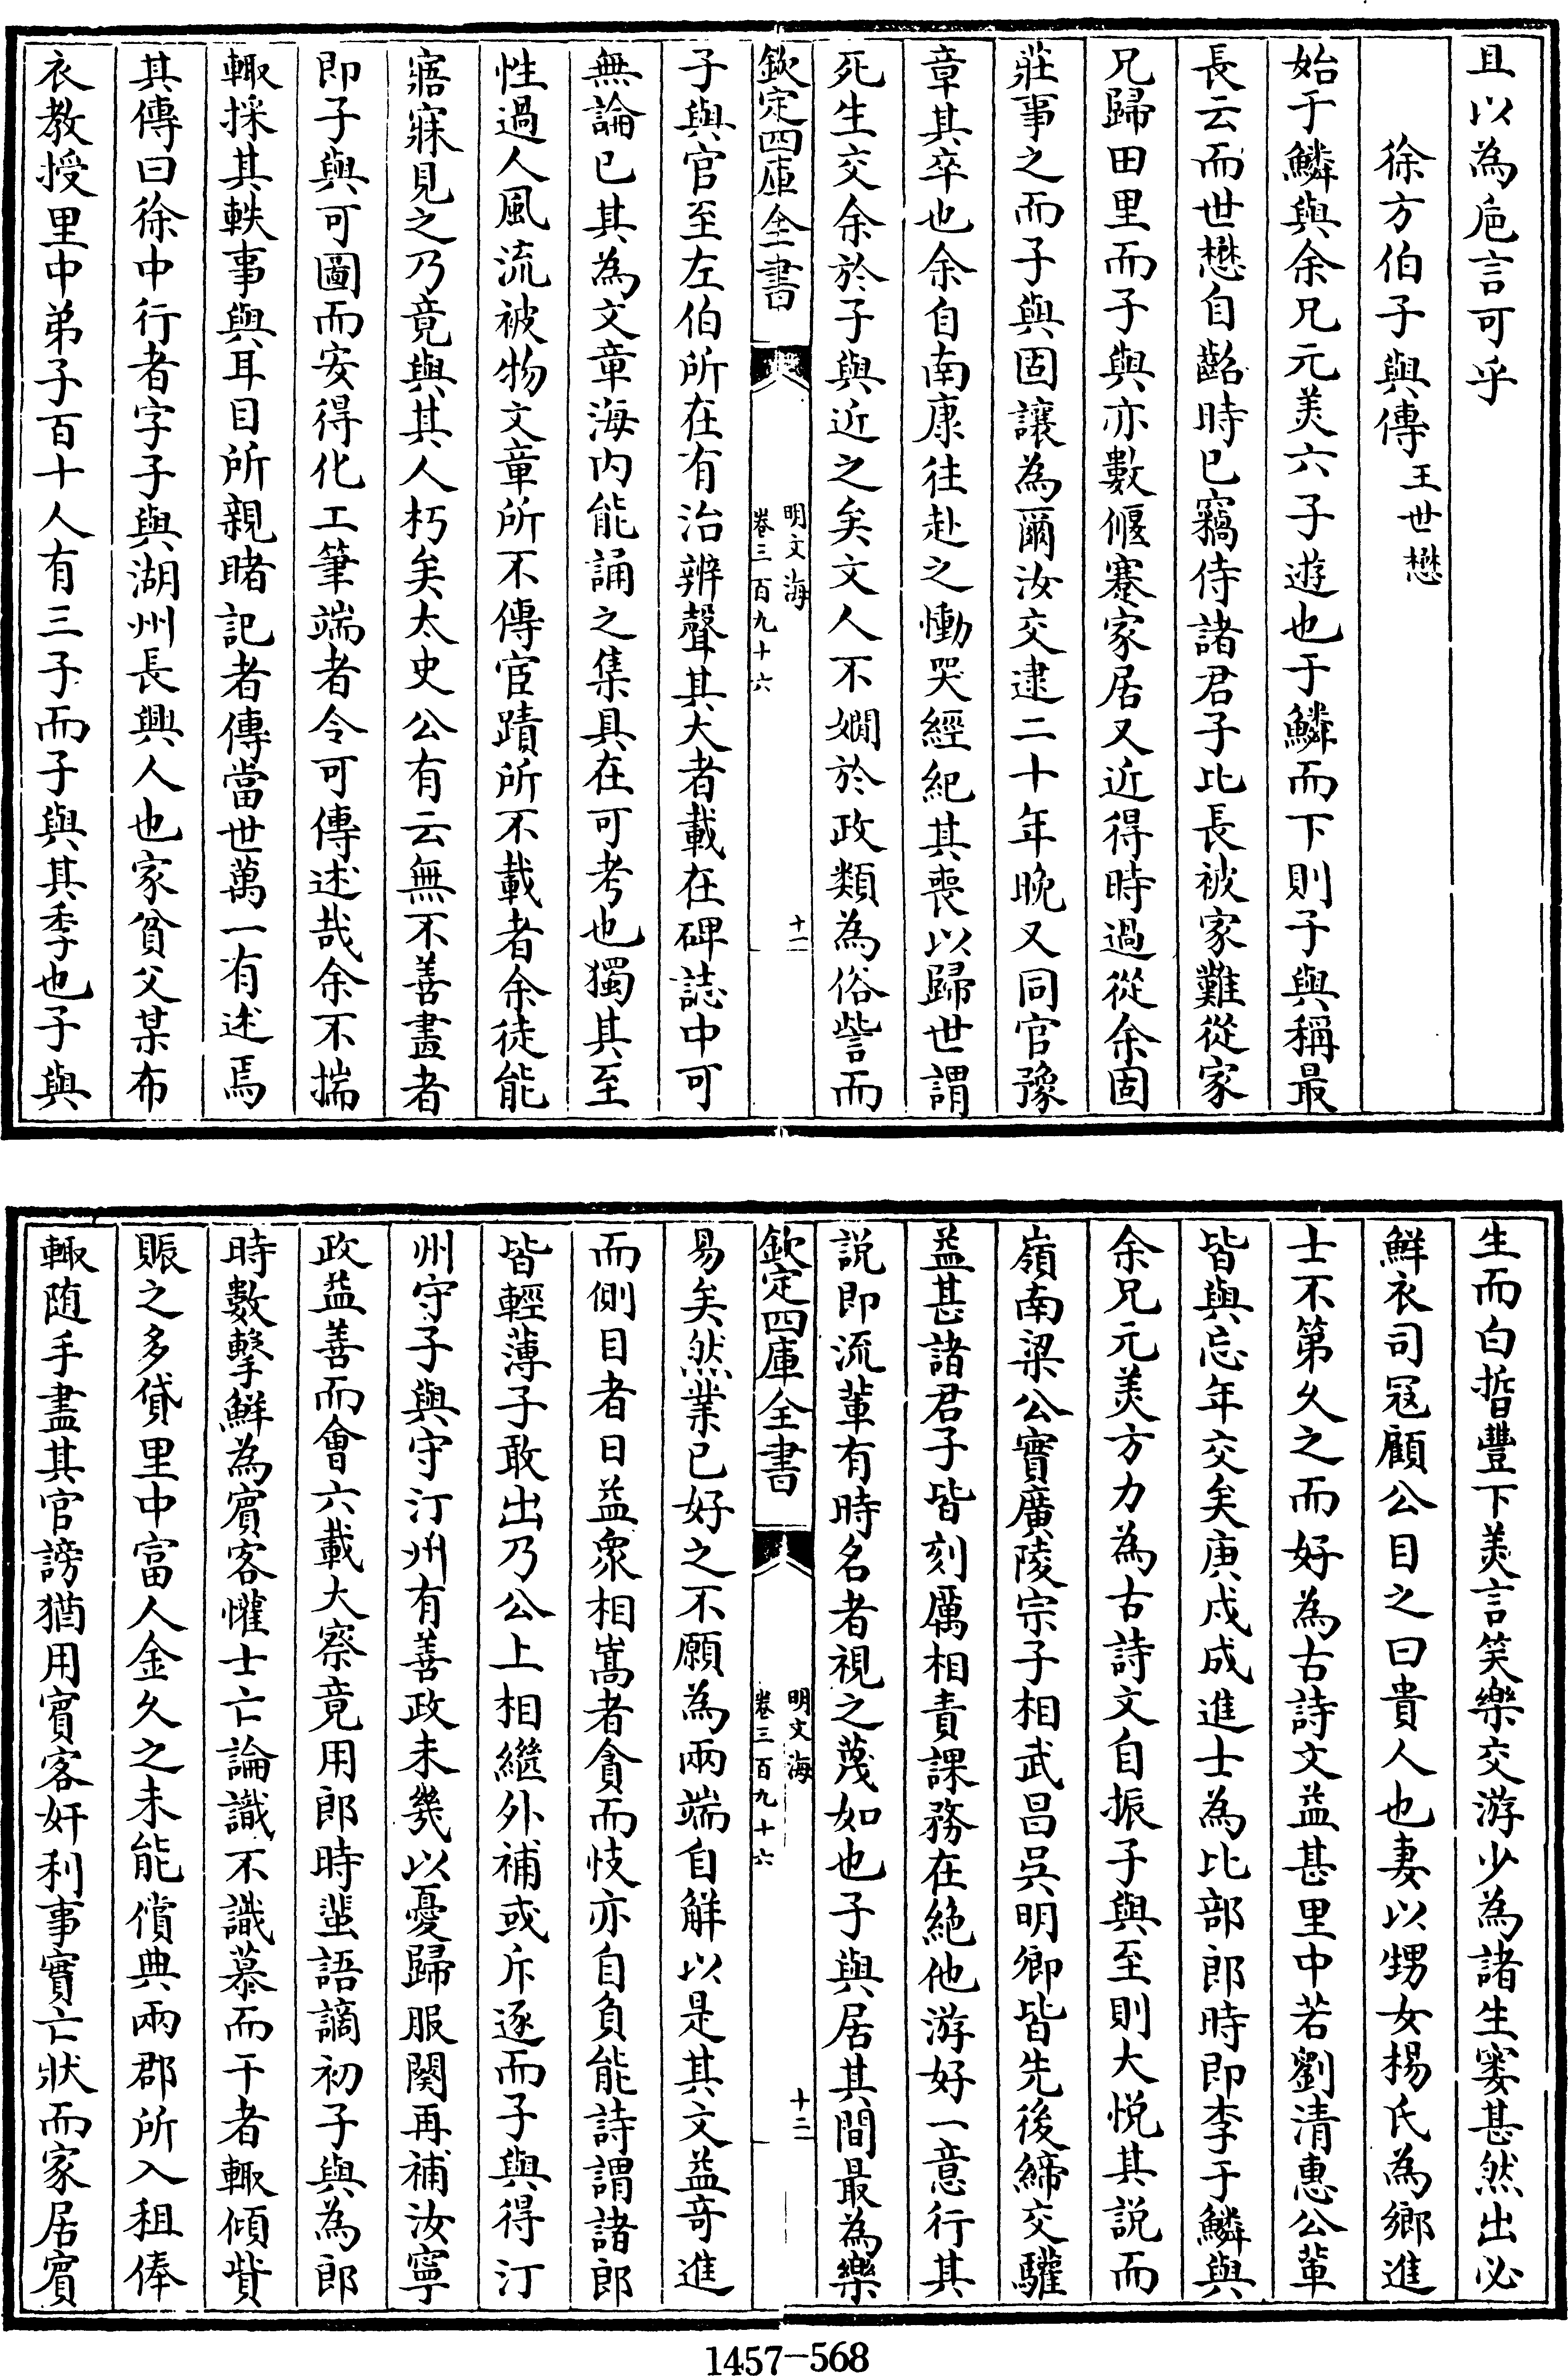 且以為巵言可乎
徐方伯子與傳王世懋
始于鱗與余兄元美六子遊也于鱗而下則子與稱最
長云而世懋自齠時已竊侍諸君子比長被家難從家
兄歸田里而子與亦數偃蹇家居又近得時過從余固
莊事之而子與固讓為爾汝交逮二十年晚又同官豫
章其卒也余自南康往赴之慟哭經紀其喪以歸世謂
死生交余於子與近之矣文人不嫻於政類為俗訾而
欽定四庫全書
明文海
卷三百九十六
十一
子與官至左伯所在有治辨聲其大者載在碑誌中可
無論已其為文章海内能誦之集具在可考也獨其至
性過人風流被物文章所不傳宦蹟所不載者余徒能
寤寐見之乃竟與其人朽矣太史公有云無不善畫者
即子與可圖而安得化工筆端者令可傳述哉余不揣
輙採其軼事與耳目所親睹記者傳當世萬一有述焉
其傳曰徐中行者字子與湖州長興人也家貧父某布
衣教授里中弟子百十人有三子而子與其季也子與
生而白晳豐下美言笑樂交游少為諸生窭甚然出必
鮮衣司冦顧公目之曰貴人也妻以甥女楊氏為鄉進
士不第久之而好為古詩文益甚里中若劉清惠公輩
皆與忘年交矣庚戍成進士為比部郎時即李于鱗與
余兄元美方力為古詩文自振子與至則大悅其説而
嶺南梁公實廣陵宗子相武昌吳明卿皆先後締交驩
益甚諸君子皆刻厲相責課務在絶他游好一意行其
説即流輩有時名者視之蔑如也子與居其間最為樂
欽定四庫全書
明文海
卷三百九十六
十二
易矣然業已好之不願為兩端自解以是其文益竒進
而側目者日益衆相嵩者貪而忮亦自負能詩謂諸郎
皆輕薄子敢出乃公上相繼外補或斥逐而子與得汀
州守子與守汀州有善政未幾以憂歸服闋再補汝寧
政益善而會六載大察竟用郎時蜚語謫初子與為郎
時數擊鮮為賓客懽士亡論識不識慕而干者輙傾貲
賑之多貸里中富人金久之未能償典兩郡所入租俸
輙随手盡其官謗猶用賓客奸利事實亡狀而家居賓
1457-568